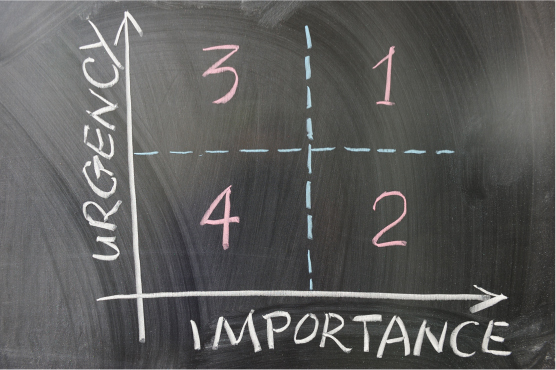 URGENCY
3 1
4 2
IMPORTANCE